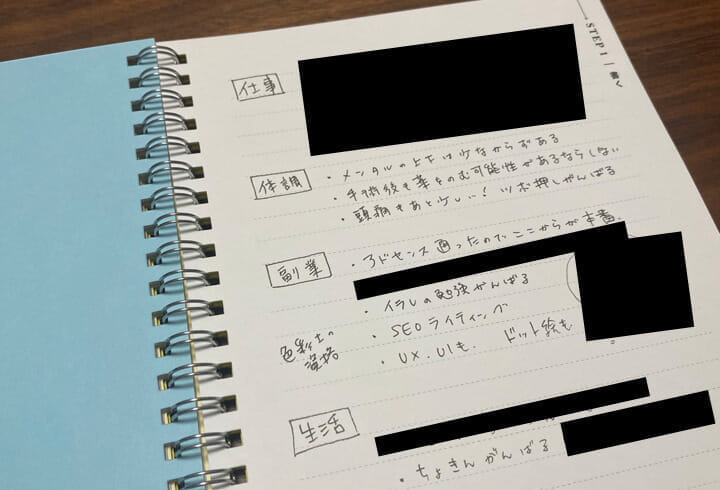 STEP 1 書く
仕事
体調
・メンタルの上下は少なからずある
・手術後も薬をのむ可能性があるならしない
・頭痛もあと少し!ツボ押しがんばる
副業
・アドセンス通ったのでここからが本番
・イラレの勉強がんばる
色彩士の
資格
・SEOライティング
・UX.UIも ドット絵も
生活
・ちょきんがんばる